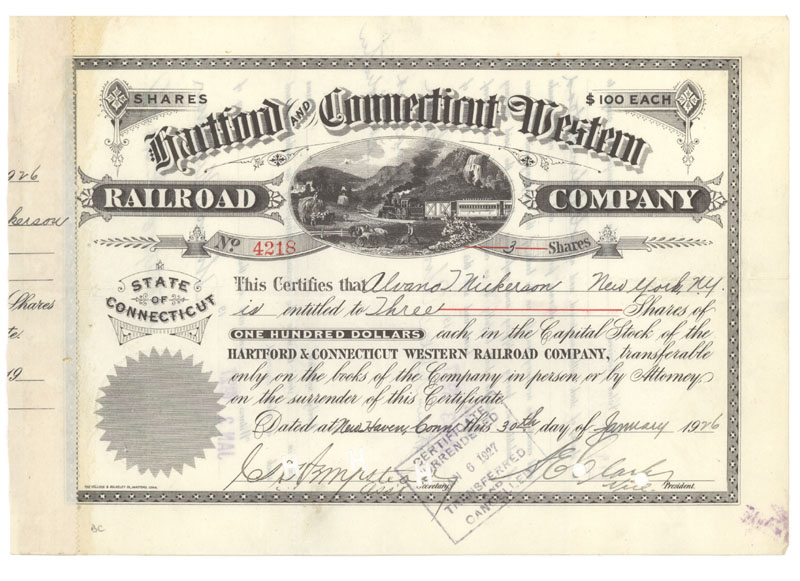 SHARES $100 EACH
Hartford AND Connecticut Western
RAILROAD COMPANY
No. 4218 3 Shares
STATE OF CONNECTICUT
This Certifies that Alvano T Nickerson New York, N.Y.
is entitled to Three Shares of
ONE HUNDRED DOLLARS each, in the Capital Stock of the
HARTFORD & CONNECTICUT WESTERN RAILROAD COMPANY, transferable
only on the books of the Company in person or by Attorney
on the surrender of this Certificate.
Dated at New Haven, Conn. this 30th day of January 1926
Secretary. Vice President.
CERTIFICATE
SURRENDERED
6 1927
TRANSFERRED
AND
CANCELLED
926
ckerson
Shares
te.
19
BC